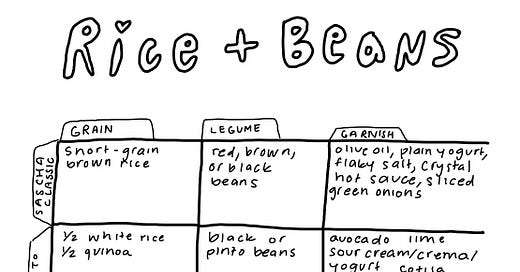 Rice + Beans
GRAIN
LEGUME
GARNISH
SASCHA
CLASSIC
Short-grain
brown rice
red, brown,
or black
beans
olive oil, plain yogurt,
flaky salt, crystal
hot sauce, sliced
green onions
TO
1/2 white rice
1/2 quinoa
black or
pinto beans
avocado lime
sour cream/crema/
yogurt cotija